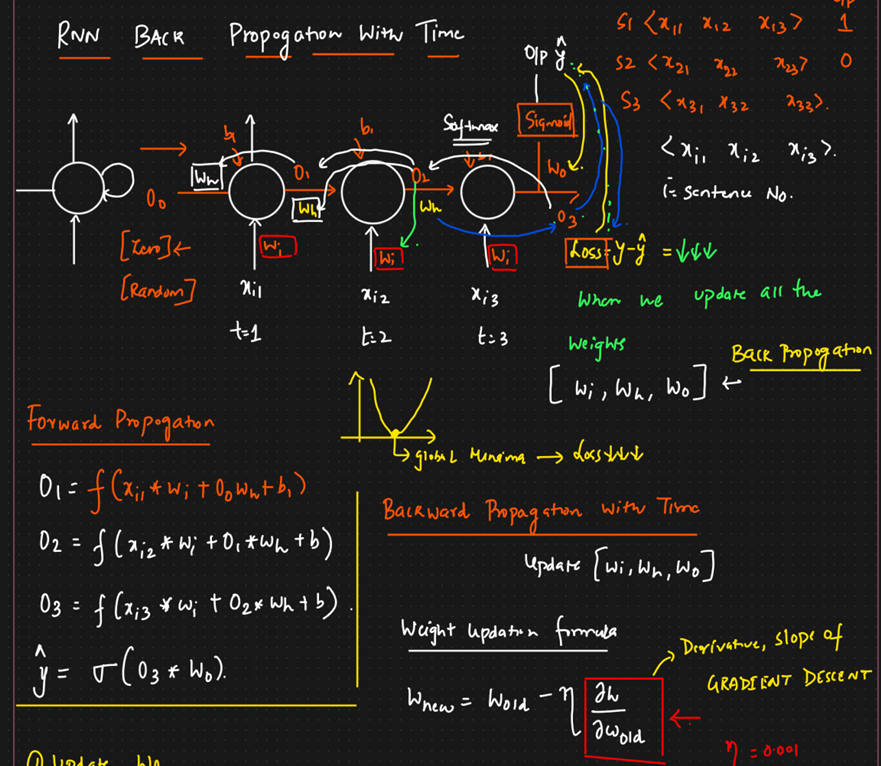 RNN BACK Propogation With Time
O/P
S1 <x11 x12 x13> 1
S2 <x21 x22 x23> 0
S3 <x31 x32 x33>.
<xi1 xi2 xi3>.
i = Sentence No.
O/P ŷ
Sigmoid
Softmax
b1
b1
Wh
O0
O1
Wh
O2
Wh
W0
O3
[Zero] ←
[Random]
Wi
Wi
Wi
xi1
xi2
xi3
t=1
t=2
t=3
Loss = y-ŷ = ↓↓↓
When we update all the
weights
[Wi, Wh, W0] ←
Back Propogation
global Minima → Loss↓↓↓
Forward Propogation
O1 = f(xi1 * wi + O0 wh + b1)
O2 = f(xi2 * wi + O1 * wh + b)
O3 = f(xi3 * wi + O2 * wh + b).
ŷ = σ(O3 * W0).
Backward Propagation with Time
Update [Wi, Wh, W0]
Weight Updation formula
Derivative, slope of
GRADIENT DESCENT
Wnew = Wold - η ∂L/∂Wold
η = 0.001
① Update Wo